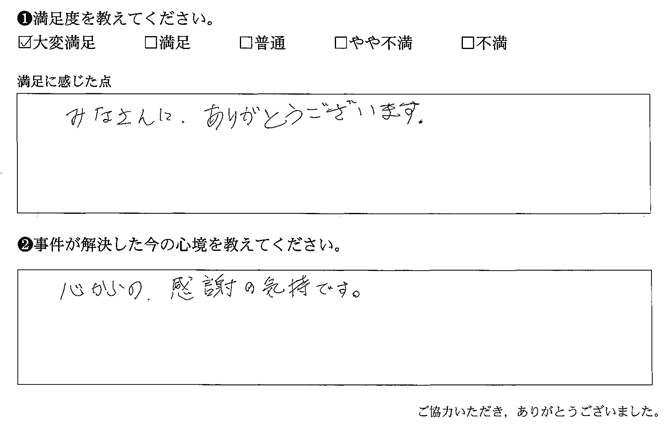 ❶満足度を教えてください。
☑大変満足 □満足 □普通 □やや不満 □不満
満足に感じた点
みなさんに、ありがとうございます。
❷事件が解決した今の心境を教えてください。
心からの、感謝の気持です。
ご協力いただき，ありがとうございました。